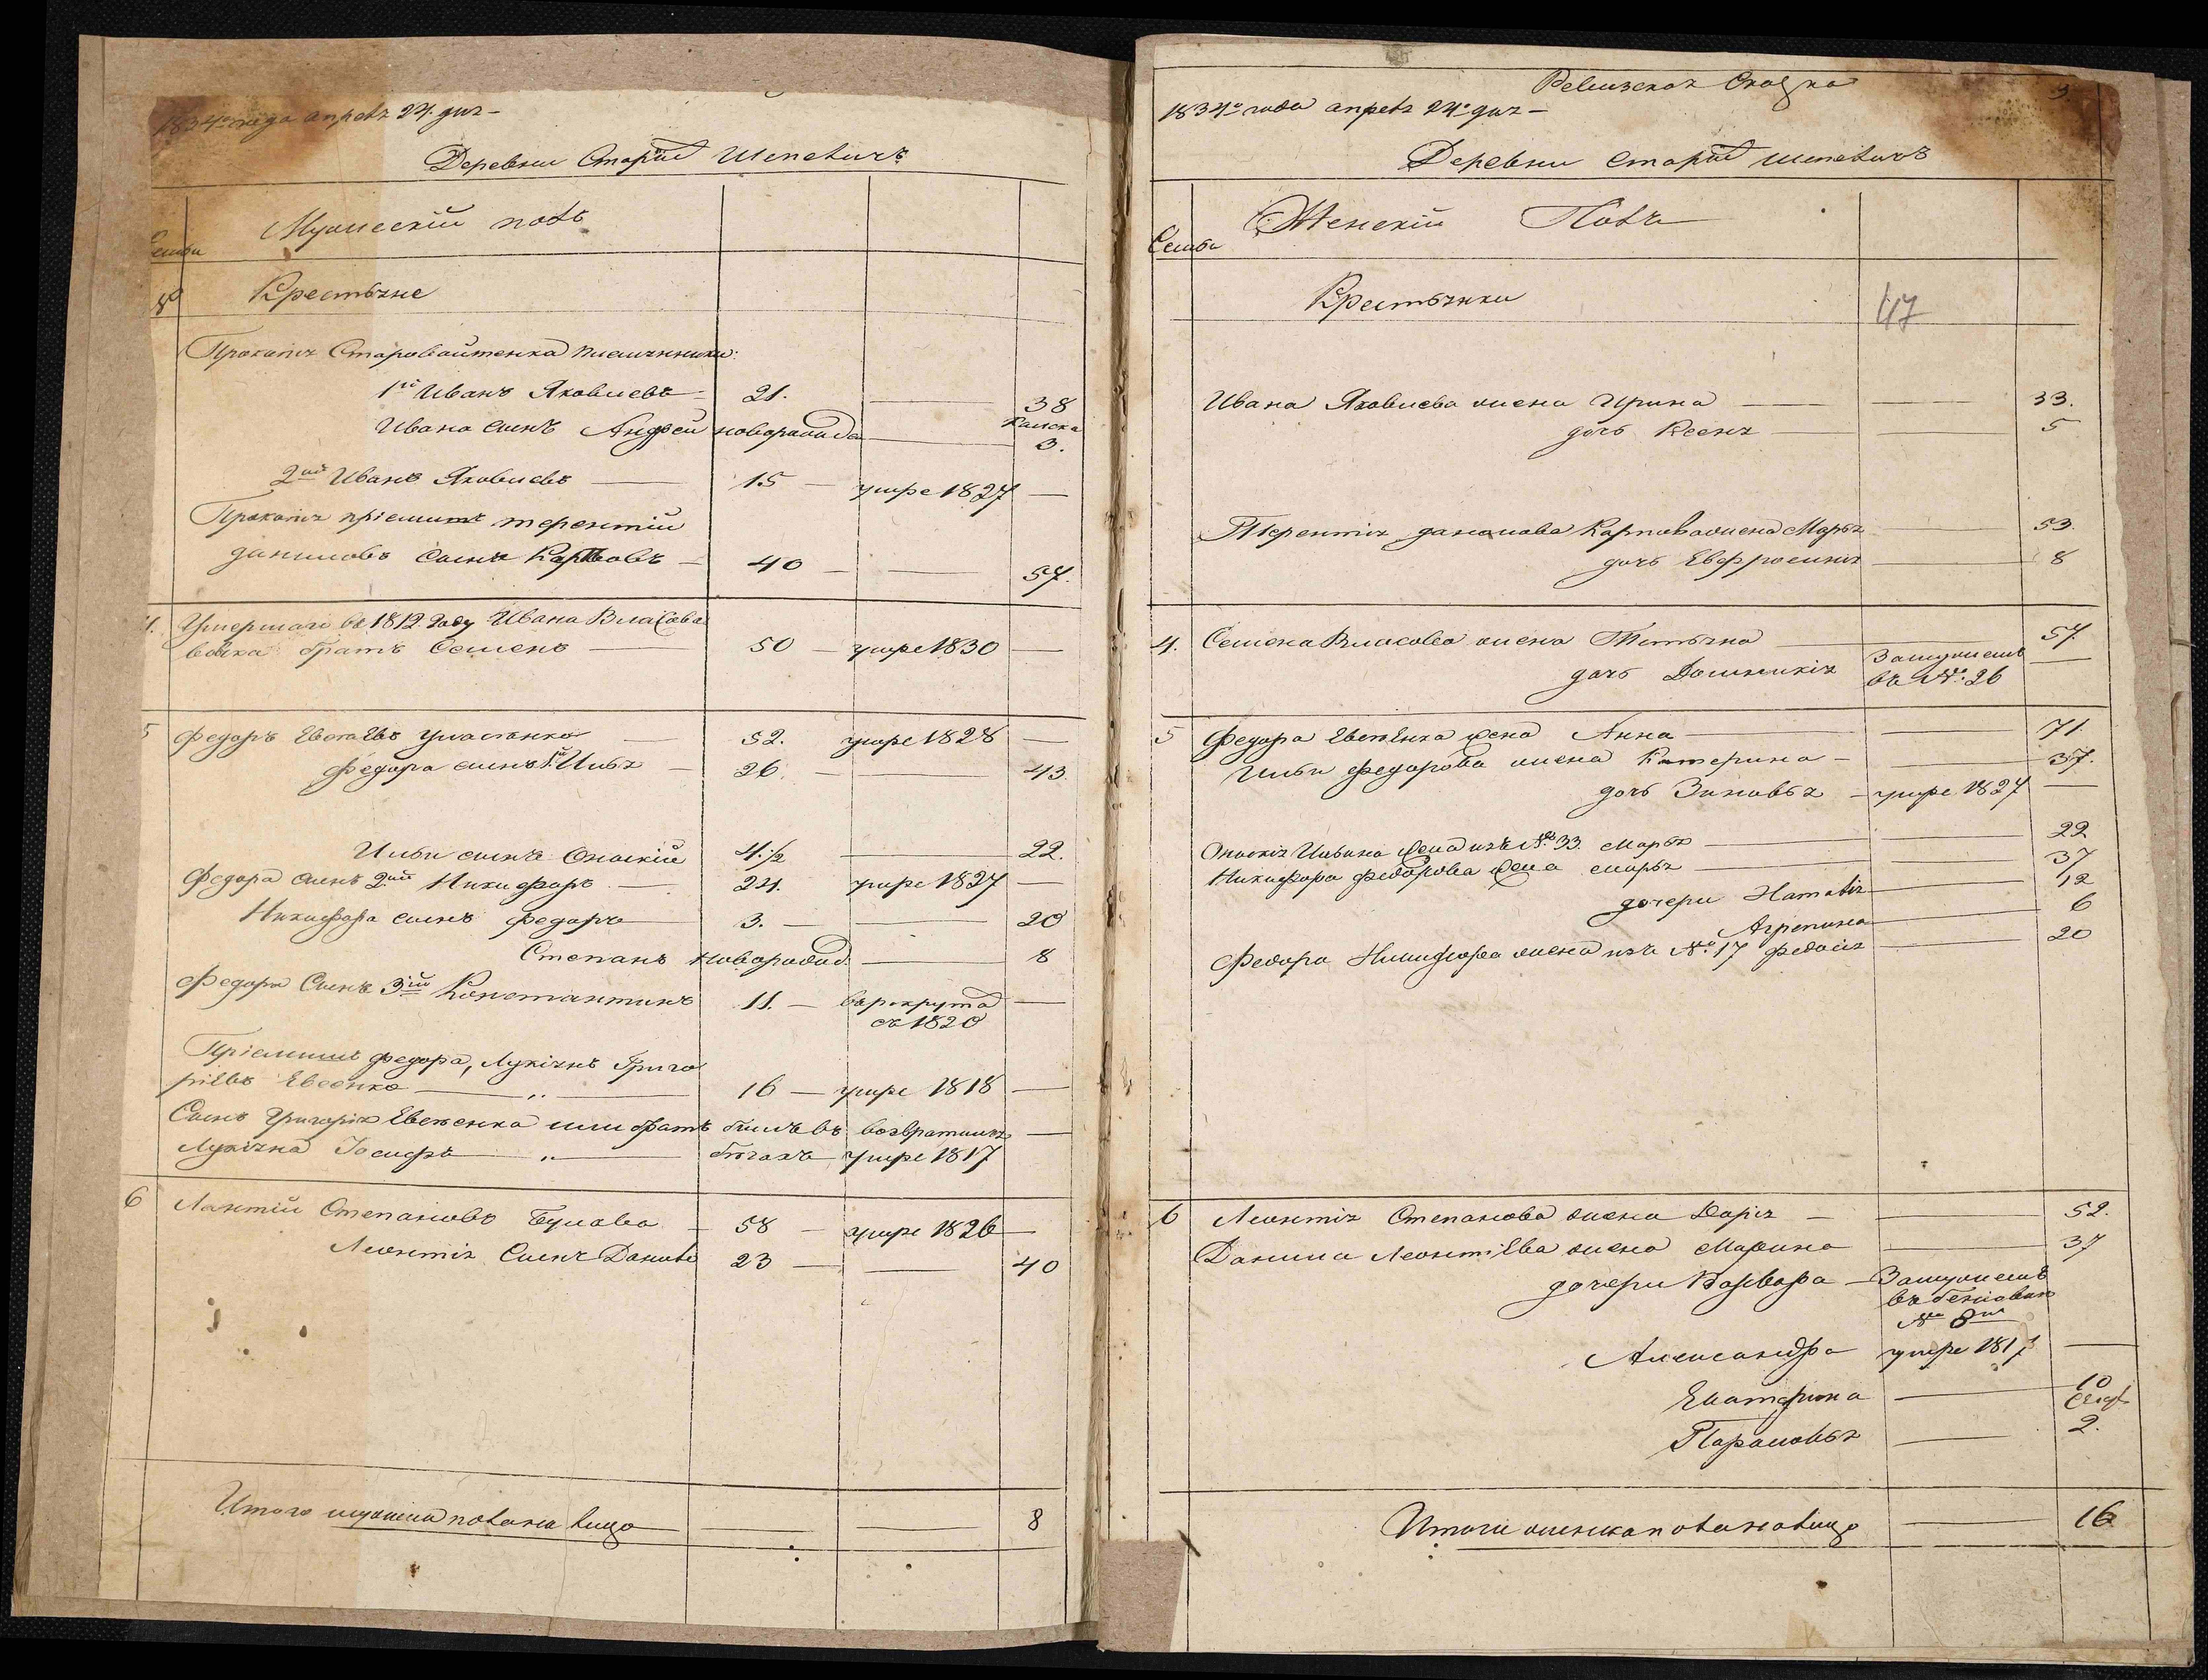 1834го года апреля 24. дня
Деревни Старой Шепеличъ
Мужескій полъ
Семьи
Крестьяне
Прокопія Старовайтенка племянники:
1й Иванъ Яковлевъ 21. 38
Ивана сынъ Андрей новорожде 3.
2ой Иванъ Яковлевъ 15 умре 1827
Прокопія пріемишъ терентій
даниловъ сынъ Карповъ 40 57.
4. Умершаго въ 1812 году Ивана Власова
братъ Семенъ 50 умре 1830
5 Федоръ 52. умре 1828
Федора сынъ 1й Илья 26 43.
Ильи сынъ Онискій 4 1/2 22.
Федора сынъ 2ой Никифоръ 24. умре 1827
Никифора сынъ Федоръ 3. 20
Степанъ новорожд. 8
Федора Сынъ 3ій Константинъ 11. въ рекрута
съ 1820
Пріемишъ федора, Лукіянъ Григо
ріевъ Евсенко 16 умре 1818
Сынъ Григорія или братъ былъ въ возвратился
Лукіяна Іосифъ бегахъ умре 1817
6 Леонтій Степановъ 58 умре 1826
Леонтія Сынъ Данило 23 40
Итого мужеска пола на лицо 8
Ревизская Сказка
3.
1834го года апреля 24го дня
Деревни Старой Шепеличъ
Женскій Полъ
Семьи
Крестьянки 47
Ивана Яковлева жена Ирина 33.
дочь Ксенія 5
Терентія данилова Карпова жена Марья 53.
дочь Евфросинія 8
4. Семена Власова жена Татьяна 57
дочь Домникія Замужемъ
въ №: 26
5 Федора жена Анна 71.
Ильи федорова жена Катерина 37.
дочь Зиновья умре 1827
Онискія Ильина жена изъ № 33. Марья 22
Никифора федорова жена Марья 37
дочери Наталія 12
Агрепина 6
Федора Никифора жена изъ №. 17 Федосія 20
6 Леонтія Степанова жена Дарія 52.
Данила Леонтіева жена Марина 37
дочери Варвара Замужемъ
№
Александра умре 1817
Екатерина 10
Парасковья 2.
Итого женска пола на лицо 16